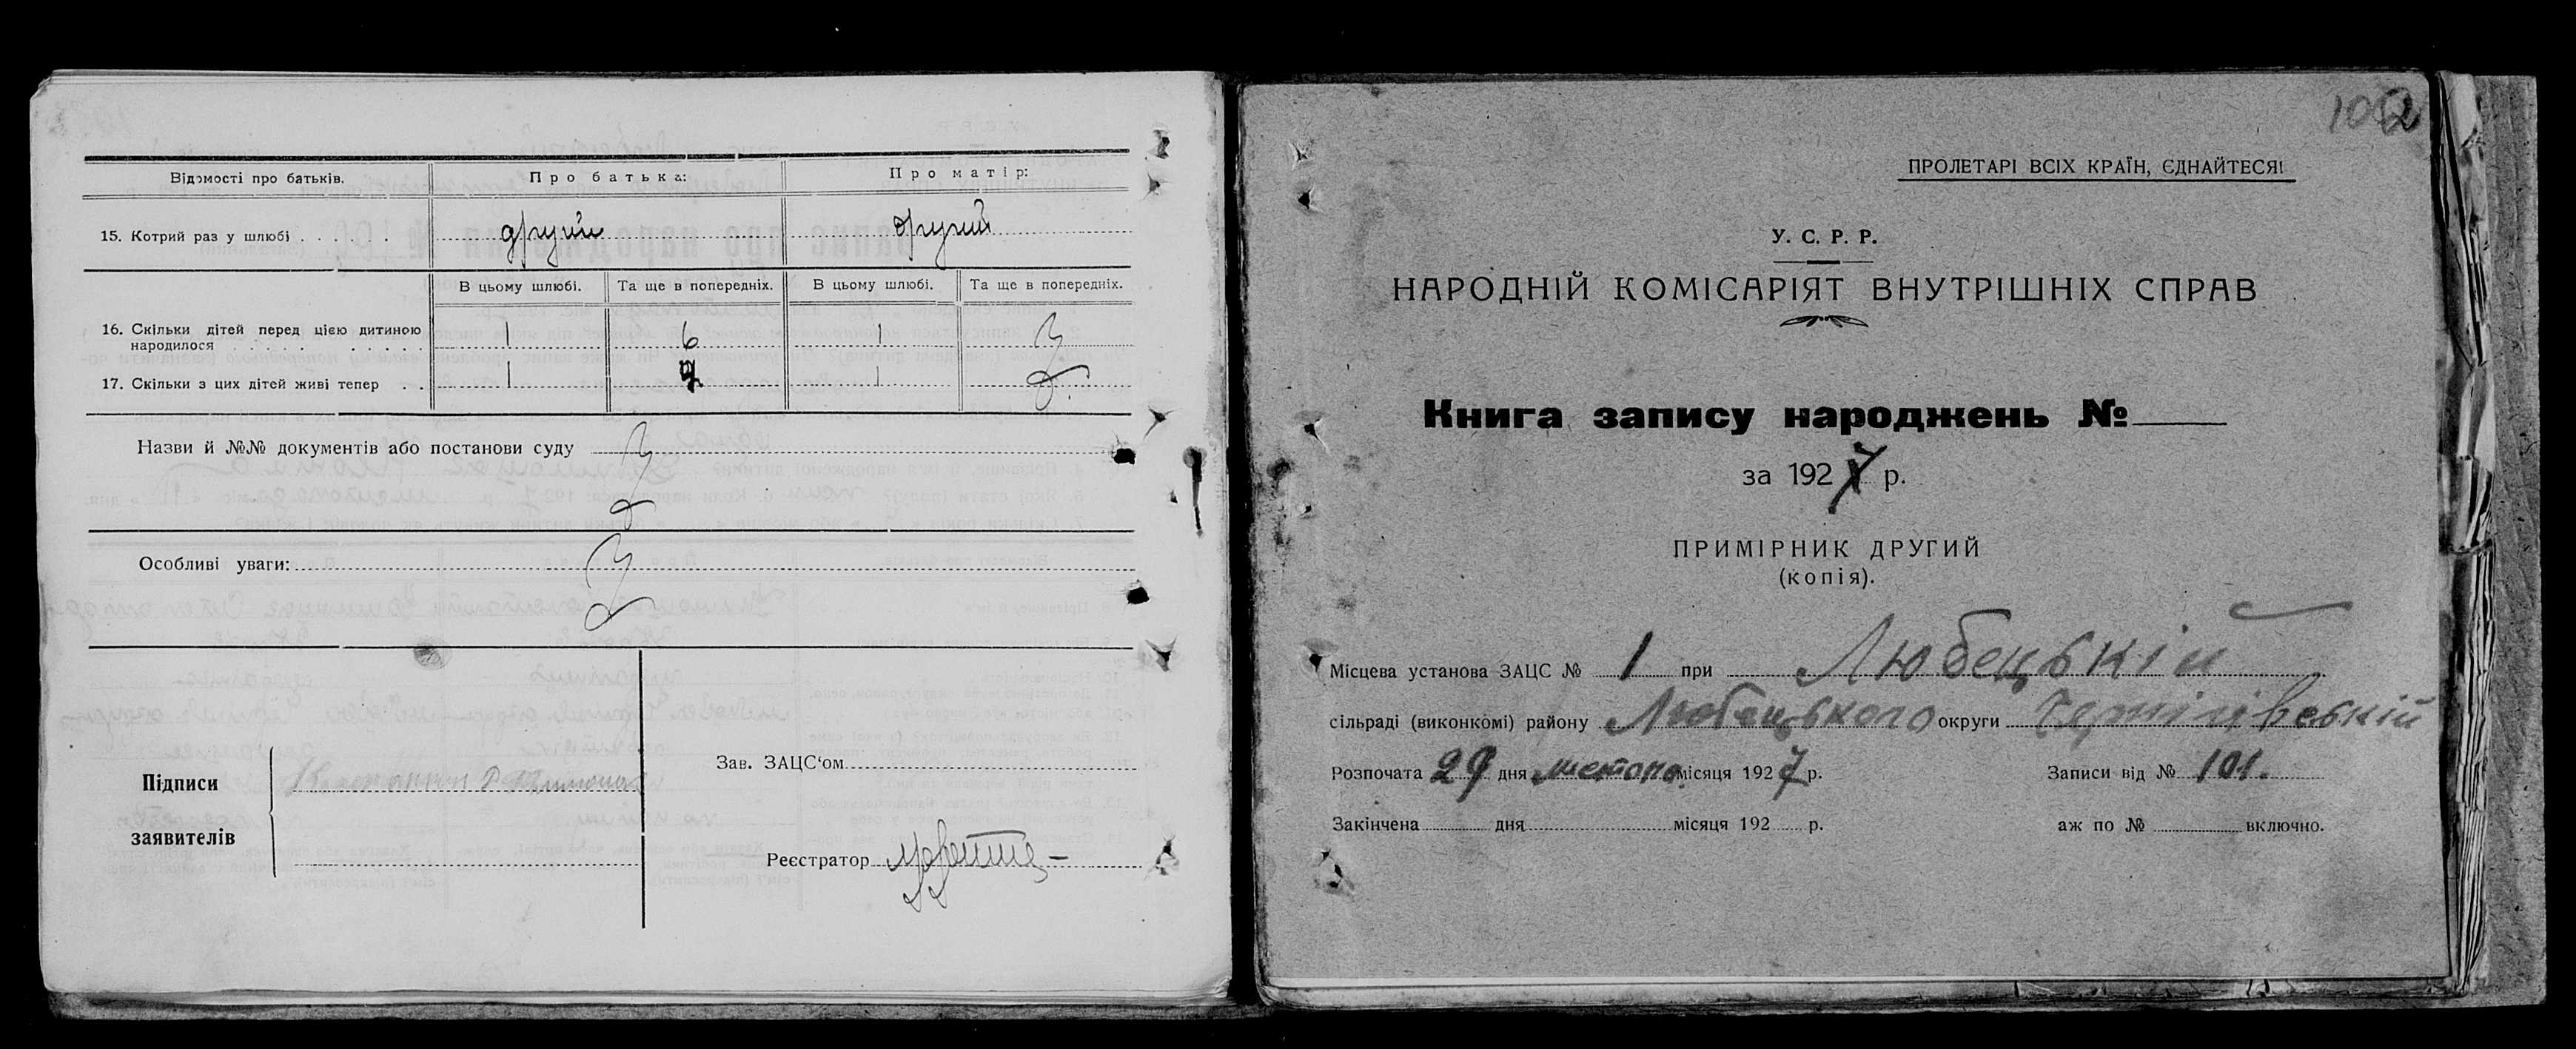 Відомості про батьків. Про батька: Про матір:
15. Котрий раз у шлюбі . . . . . . другий другий
В цьому шлюбі. Та ще в попередніх. В цьому шлюбі. Та ще в попередніх.
16. Скільки дітей перед цією дитиною 1 6 1
народилося . . . . . . . .
17. Скільки з цих дітей живі тепер . . 1 1
Назви й №№ документів або постанови суду
Особливі уваги:
Підписи
заявителів
Зав. ЗАЦС‘ом
Реєстратор
102
ПРОЛЕТАРІ ВСІХ КРАЇН, ЄДНАЙТЕСЯ!
У. С. Р. Р.
НАРОДНІЙ КОМІСАРІЯТ ВНУТРІШНІХ СПРАВ
Книга запису народжень №
за 1927 р.
ПРИМІРНИК ДРУГИЙ
(копія).
Місцева установа ЗАЦС № 1 при Любецькій
сільраді (виконкомі) району Любецького округи Чернігівській
Розпочата 29 дня місяця 1927 р. Записи від № 101.
Закінчена дня місяця 192 р. аж по № включно.